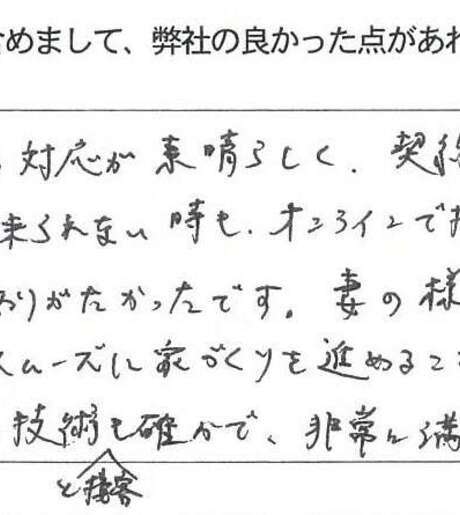 含めまして、弊社の良かった点があれ
対応が素晴らしく、契約
来られない時も、オンラインで
ありがたかったです。妻の様
スムーズに家づくりを進めるこ
技術も確かで、非常に満
と接客